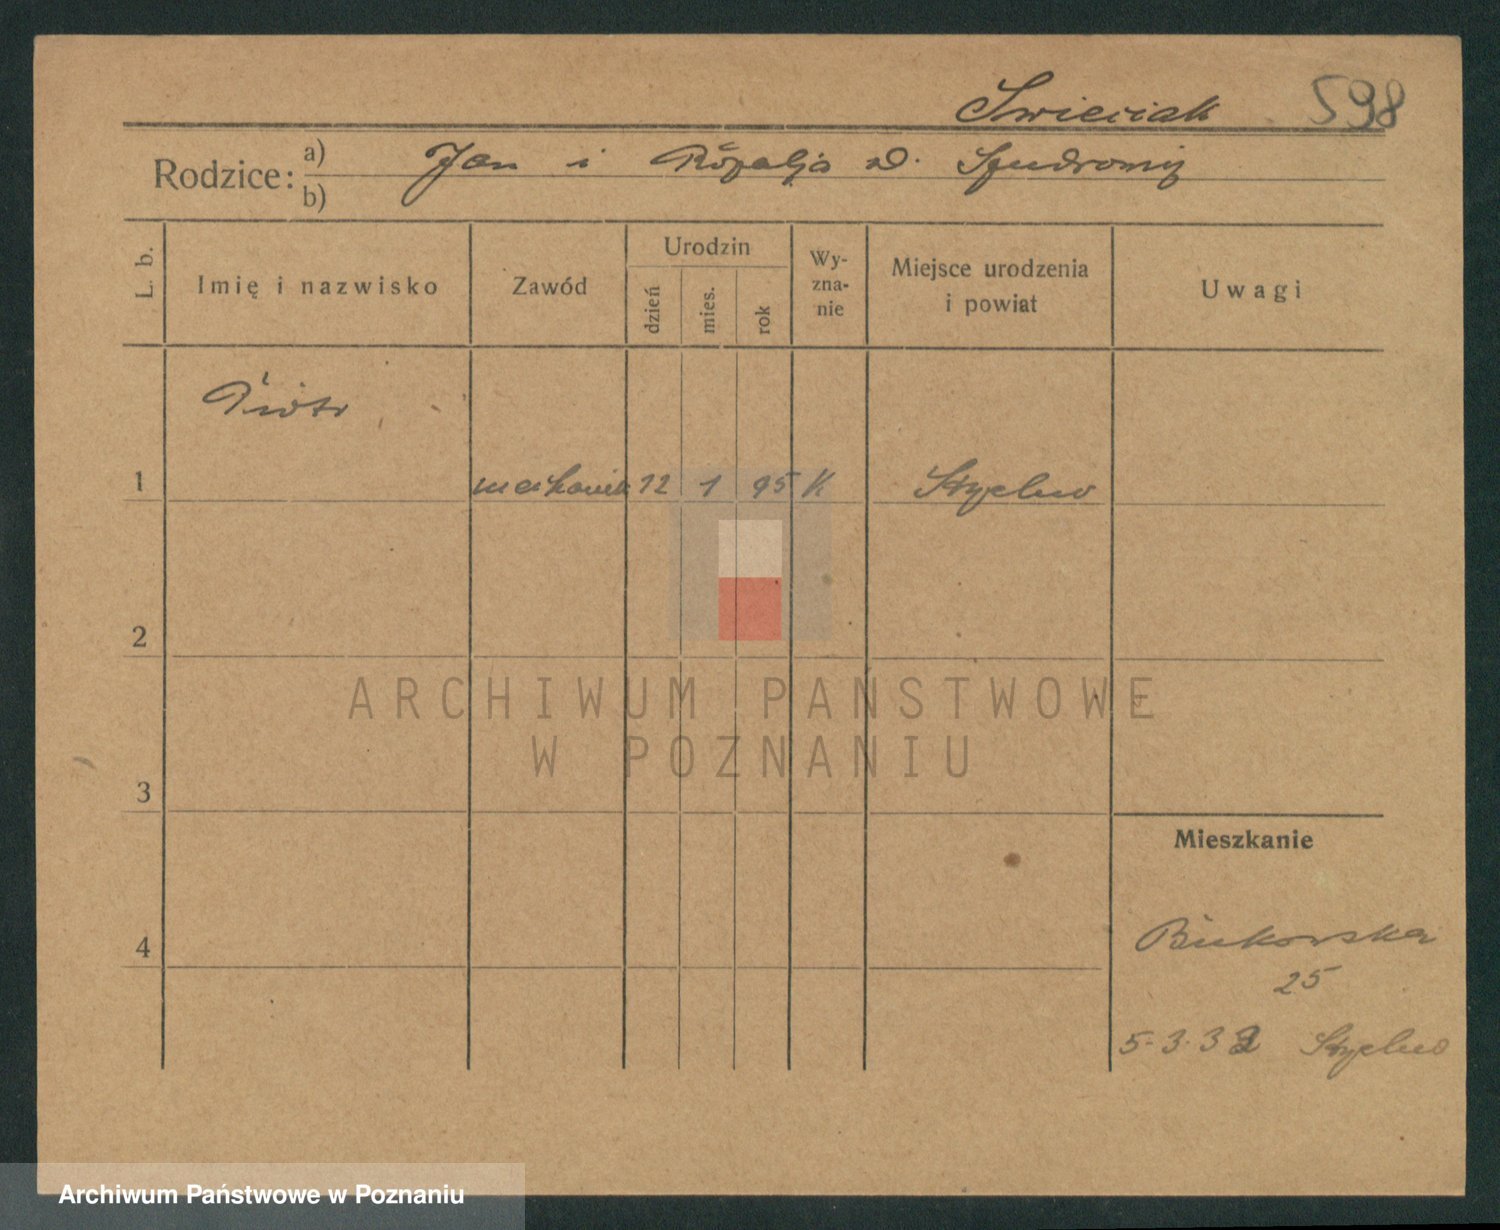 Swieciak 598
Rodzice: a) Jan i Rozalja d.
b)
L. b.
Imię i nazwisko
Zawód
Urodzin
dzień
mies.
rok
Wy-
zna-
nie
Miejsce urodzenia
i powiat
Uwagi
Piotr
1 mechanik 12 1 95 K Strzelno
2
ARCHIWUM PAŃSTWOWE
W POZNANIU
3
Mieszkanie
4
Bukowska
25
5.3.32 Strzelno
Archiwum Państwowe w Poznaniu